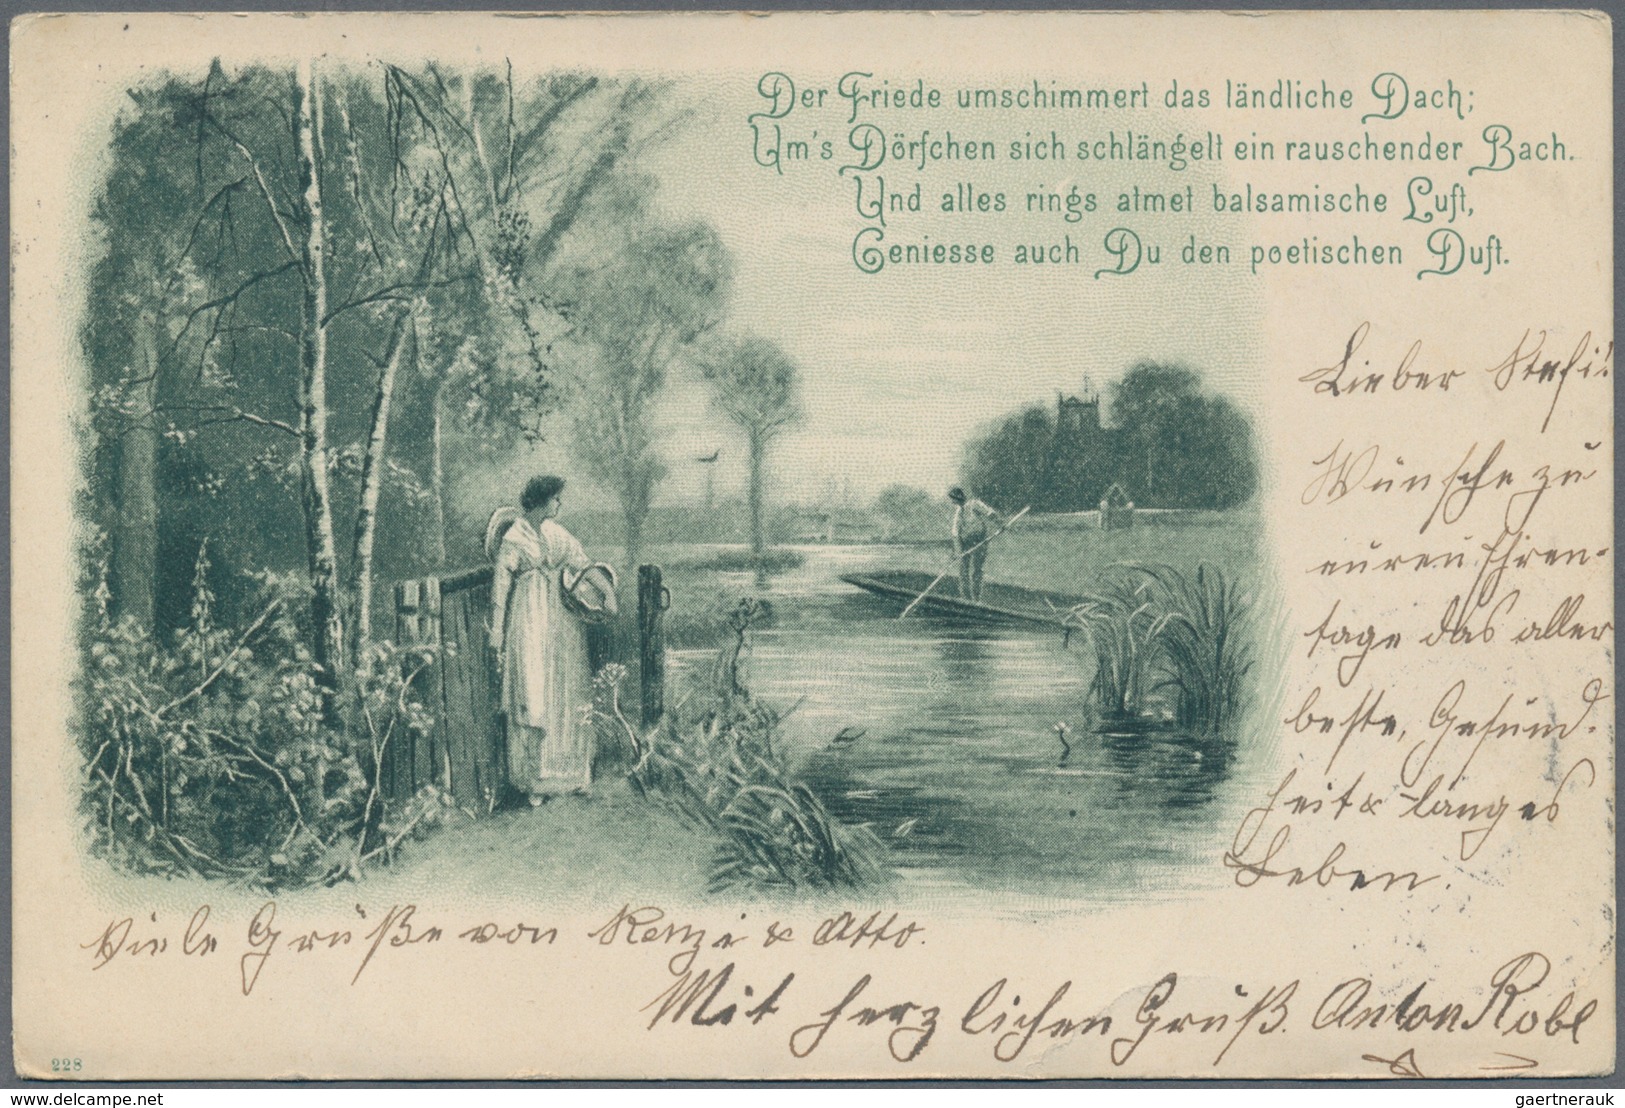 Der Friede umschimmert das ländliche Dach;
Um's Dörfchen sich schlängelt ein rauschender Bach.
Und alles rings atmet balsamische Luft,
Geniesse auch Du den poetischen Duft.
Lieber Stefi!
Wünsche zu
euren Ehren-
tage das aller
beste, Gesund-
heit & langes
Leben.
Viele Grüße von Renzi & Otto.
Mit herzlichen Gruß. Anton Robl
228
www.delcampe.net
gaertnerauk